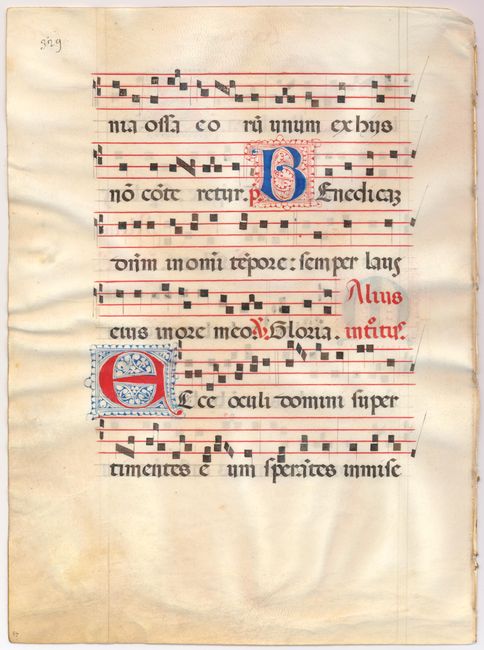 329
nia ossa eo rū unum ex hijs
nō cōte retur. p̄. BEnedicaʒ
dn̄m in om̄i tēpore : semper laus
eius in ore meo. V̄. Gloria. Alius introitus.
ECce oculi domini super
timentes e um sperātes in mise